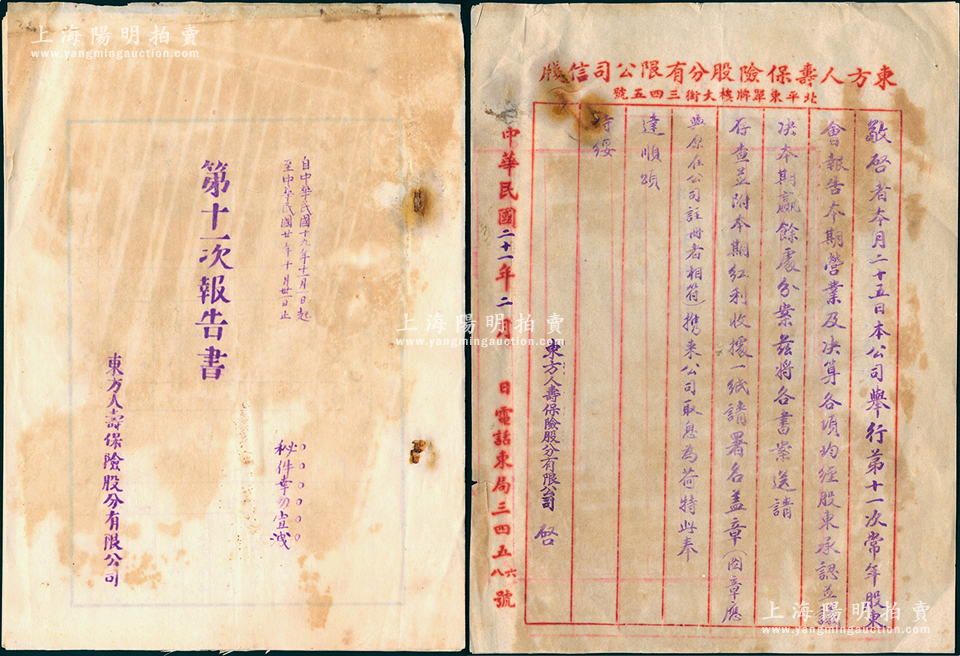 上海陽明拍賣
www.yangmingauction.com
自中華民國十九年十一月一日起
至中華民國廿年十月卅一日止
第十一次報告書
秘件幸勿宣洩
東方人壽保險股分有限公司
東方人壽保險股分有限公司信牋
北平東單牌樓大街三四五號
敬啓者本月二十五日本公司舉行第十一次常年股東
會報告本期營業及决算各項均經股東承認並議
决本期贏餘處分案茲將各書案送請
存查並附本期紅利收據一紙請署名盖章(圖章應
與原在公司註冊者相符)携来公司取息為荷特此奉
達順頌
時綏
東方人壽保險股分有限公司 啓
中華民國二十一年二月 日電話東局三四五六八號
上海陽明拍賣
www.yangmingauction.com
上海陽明拍賣
www.yangmingauction.com